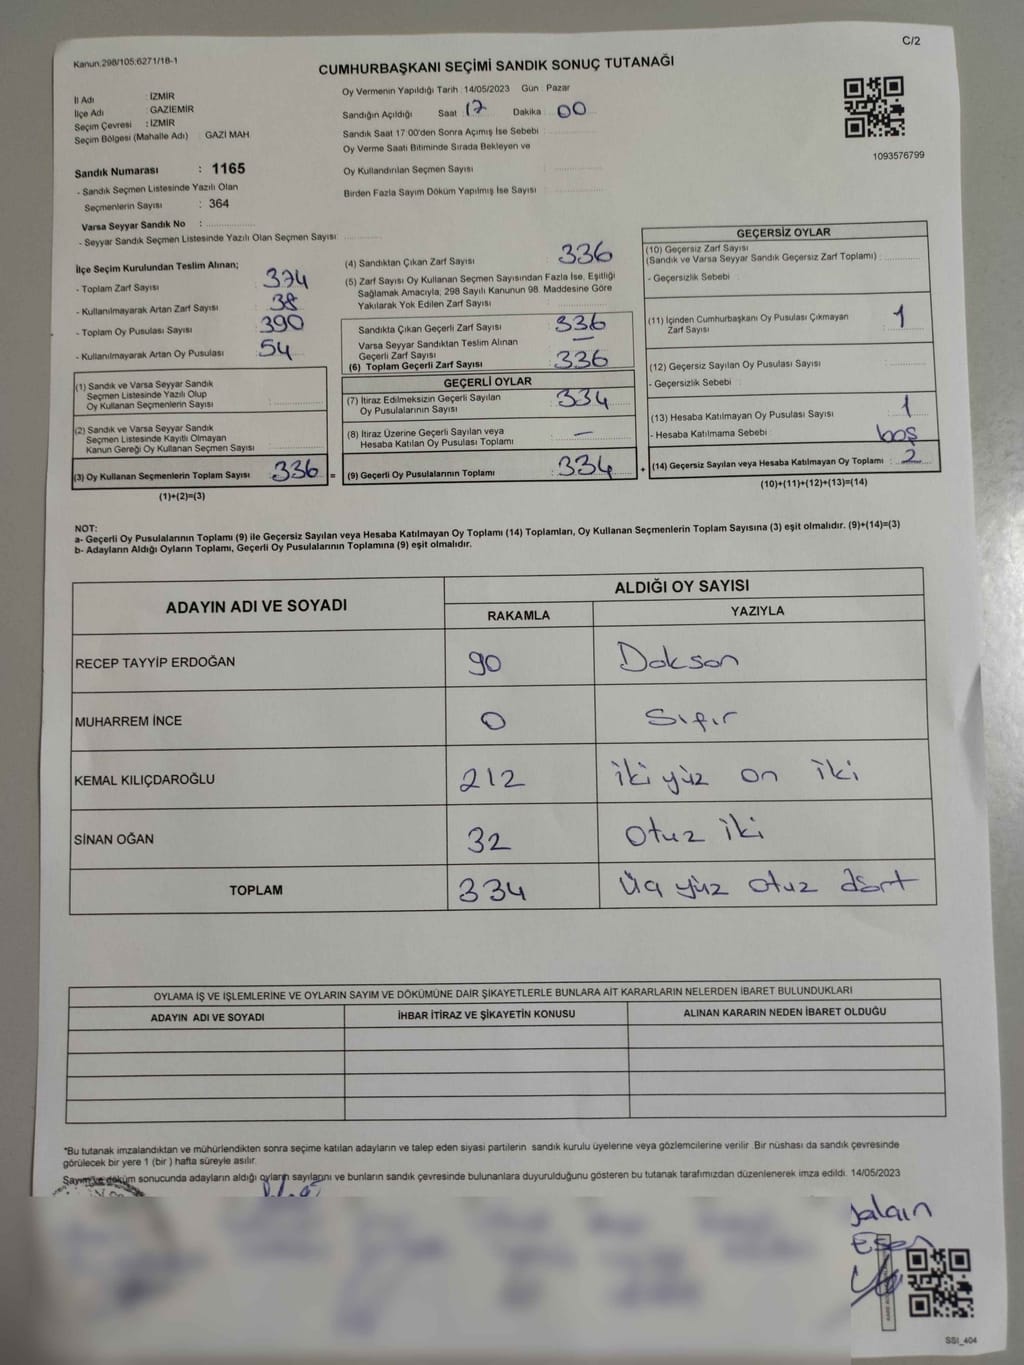 Kanun:298/105;6271/18-1
C/2
CUMHURBAŞKANI SEÇİMİ SANDIK SONUÇ TUTANAĞI
İl Adı : İZMİR
İlçe Adı : GAZİEMİR
Seçim Çevresi : İZMİR
Seçim Bölgesi (Mahalle Adı) : GAZİ MAH.
Oy Vermenin Yapıldığı Tarih : 14/05/2023 Gün : Pazar
Sandığın Açıldığı Saat : 17 Dakika : 00
Sandık Saat 17:00'den Sonra Açımış İse Sebebi :
Oy Verme Saati Bitiminde Sırada Bekleyen ve
Oy Kullandırılan Seçmen Sayısı :
Birden Fazla Sayım Döküm Yapılmış İse Sayısı :
1093576799
Sandık Numarası : 1165
- Sandık Seçmen Listesinde Yazılı Olan
Seçmenlerin Sayısı : 364
Varsa Seyyar Sandık No :
- Seyyar Sandık Seçmen Listesinde Yazılı Olan Seçmen Sayısı :
İlçe Seçim Kurulundan Teslim Alınan;
- Toplam Zarf Sayısı : 374
- Kullanılmayarak Artan Zarf Sayısı : 38
- Toplam Oy Pusulası Sayısı : 390
- Kullanılmayarak Artan Oy Pusulası : 54
(1) Sandık ve Varsa Seyyar Sandık
Seçmen Listesinde Yazılı Olup
Oy Kullanan Seçmenlerin Sayısı :
(2) Sandık ve Varsa Seyyar Sandık
Seçmen Listesinde Kayıtlı Olmayan
Kanun Gereği Oy Kullanan Seçmen Sayısı :
(3) Oy Kullanan Seçmenlerin Toplam Sayısı : 336 =
(1)+(2)=(3)
(4) Sandıktan Çıkan Zarf Sayısı : 336
(5) Zarf Sayısı Oy Kullanan Seçmen Sayısından Fazla İse, Eşitliği
Sağlamak Amacıyla, 298 Sayılı Kanunun 98. Maddesine Göre
Yakılarak Yok Edilen Zarf Sayısı :
Sandıkta Çıkan Geçerli Zarf Sayısı : 336
Varsa Seyyar Sandıktan Teslim Alınan
Geçerli Zarf Sayısı : —
(6) Toplam Geçerli Zarf Sayısı : 336
GEÇERLİ OYLAR
(7) İtiraz Edilmeksizin Geçerli Sayılan
Oy Pusulalarının Sayısı : 334
(8) İtiraz Üzerine Geçerli Sayılan veya
Hesaba Katılan Oy Pusulası Toplamı : —
(9) Geçerli Oy Pusulalarının Toplamı : 334 +
GEÇERSİZ OYLAR
(10) Geçersiz Zarf Sayısı
(Sandık ve Varsa Seyyar Sandık Geçersiz Zarf Toplamı) :
- Geçersizlik Sebebi :
(11) İçinden Cumhurbaşkanı Oy Pusulası Çıkmayan
Zarf Sayısı : 1
(12) Geçersiz Sayılan Oy Pusulası Sayısı :
- Geçersizlik Sebebi :
(13) Hesaba Katılmayan Oy Pusulası Sayısı : 1
- Hesaba Katılmama Sebebi : boş
(14) Geçersiz Sayılan veya Hesaba Katılmayan Oy Toplamı : 2
(10)+(11)+(12)+(13)=(14)
NOT:
a- Geçerli Oy Pusulalarının Toplamı (9) ile Geçersiz Sayılan veya Hesaba Katılmayan Oy Toplamı (14) Toplamları, Oy Kullanan Seçmenlerin Toplam Sayısına (3) eşit olmalıdır. (9)+(14)=(3)
b- Adayların Aldığı Oyların Toplamı, Geçerli Oy Pusulalarının Toplamına (9) eşit olmalıdır.
ADAYIN ADI VE SOYADI
ALDIĞI OY SAYISI
RAKAMLA YAZIYLA
RECEP TAYYİP ERDOĞAN 90 Doksan
MUHARREM İNCE 0 Sıfır
KEMAL KILIÇDAROĞLU 212 iki yüz on iki
SİNAN OĞAN 32 otuz iki
TOPLAM 334 Üç yüz otuz dört
OYLAMA İŞ VE İŞLEMLERİNE VE OYLARIN SAYIM VE DÖKÜMÜNE DAİR ŞİKAYETLERLE BUNLARA AİT KARARLARIN NELERDEN İBARET BULUNDUKLARI
ADAYIN ADI VE SOYADI İHBAR İTİRAZ VE ŞİKAYETİN KONUSU ALINAN KARARIN NEDEN İBARET OLDUĞU
*Bu tutanak imzalandıktan ve mühürlendikten sonra seçime katılan adayların ve talep eden siyasi partilerin sandık kurulu üyelerine veya gözlemcilerine verilir. Bir nüshası da sandık çevresinde
görülecek bir yere 1 (bir ) hafta süreyle asılır.
Sayım ve döküm sonucunda adayların aldığı oyların sayılarını ve bunların sandık çevresinde bulunanlara duyurulduğunu gösteren bu tutanak tarafımızdan düzenlenerek imza edildi. 14/05/2023
SSI_404